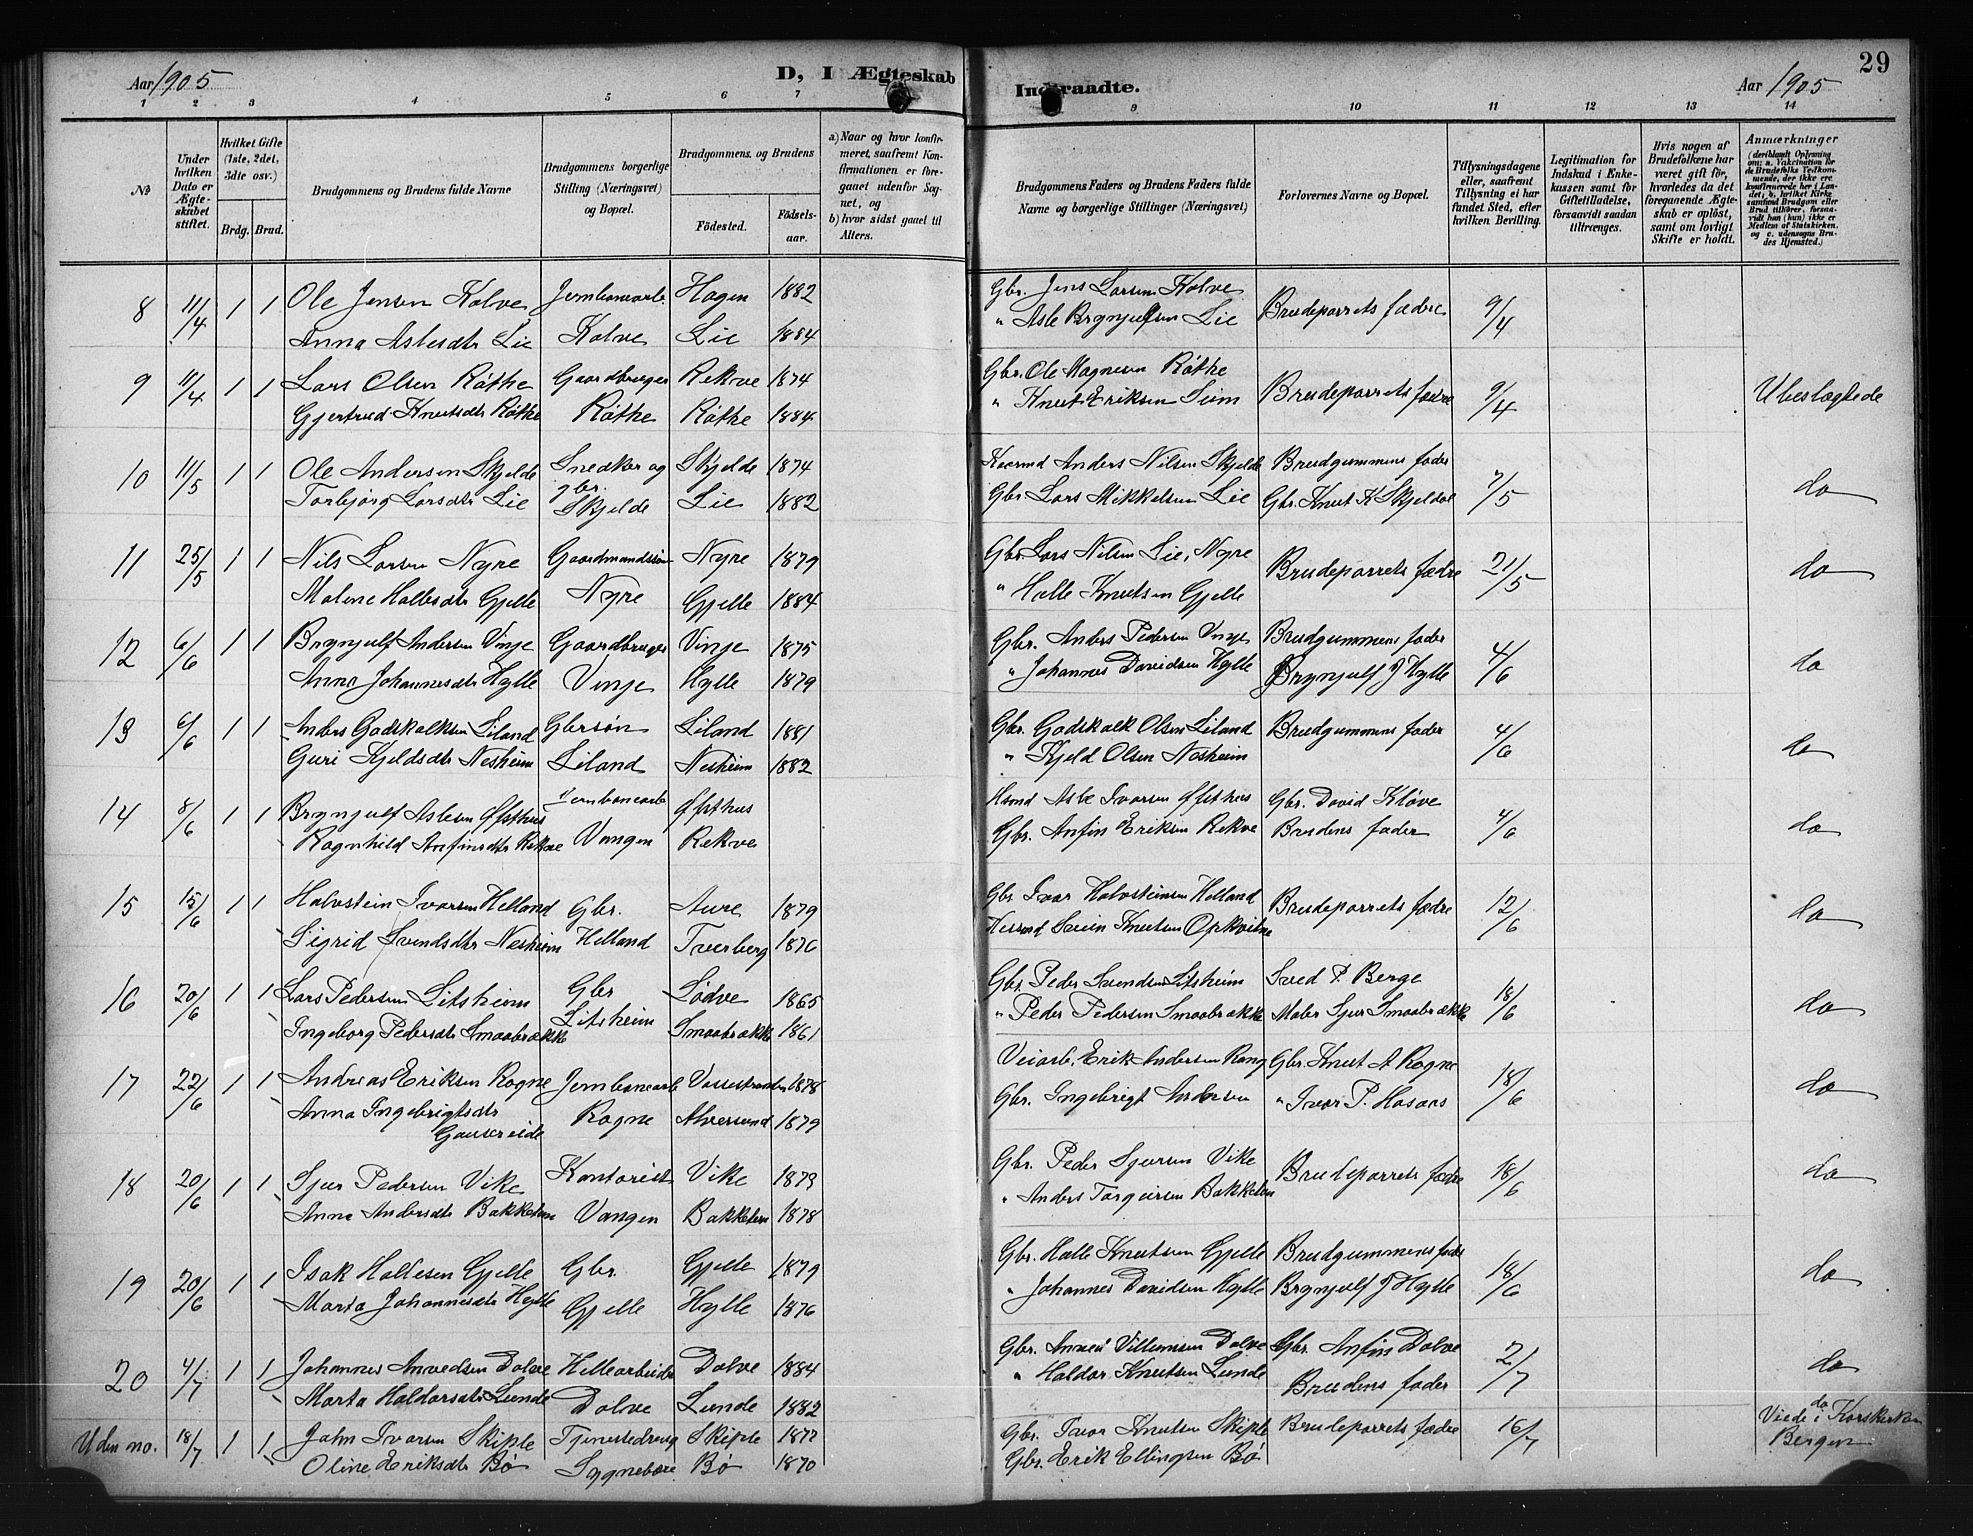 Aar 1905
D, I Ægteskab
Indtraadte.
Aar 1905
29
1 2 3 4 5 6 7
9 10 11 12 13 14
No
Under hvilken Dato er Ægteskabet stiftet.
Hvilket Gifte (1ste, 2det, 3die osv.)
Brdg. Brud.
Brudgommens og Brudens fulde Navne
Brudgommens borgerlige Stilling (Næringsvei) og Bopæl.
Brudgommens og Brudens
Fødested.
Fødselsaar.
a) Naar og hvor konfirmeret, saafremt Konfirmationen er foregaaet udenfor Sognet, og
b) hvor sidst gaaet til Alters.
Brudgommens Faders og Brudens Faders fulde Navne og borgerlige Stillinger (Næringsvei)
Forlovernes Navne og Bopæl.
Tillysningsdagene eller, saafremt Tillysning ei har fundet Sted, efter hvilken Bevilling.
Legitimation for Indskud i Enkekassen samt for Giftetilladelse, forsaavidt saadan tiltrænges.
Hvis nogen af Brudefolkene har været gift før, hvorledes da det foregaaende Ægteskab er opløst, samt om lovligt Skifte er holdt.
Anmærkninger
(deriblandt Oplysning om: a. Vakcination for de Brudefolks Vedkommende, der ikke ere konfirmerede her i Landet; b. hvilket Kirkesamfund Brudgom eller Brud tilhører, forsaavidt han (hun) ikke er Medlem af Statskirken, og c. udensogns Brudes Hjemsted.)
8 11/4 1 1 Ole Jensen Kolve Jernbanearb. Hagen 1882 Gbr. Jens Larsen Kolve Brudeparrets fædre 9/4
Anna Aslesdtr Lie Kolve Lie 1884 " Asle Brynjulfsen Lie
9 11/4 1 1 Lars Olsen Røthe Gaardbruger Rekve 1874 Gbr. Ole Magnesen Røthe Brudeparrets fædre 9/4 Ubeslægtede
Gjertrud Knutsdtr Røthe Røthe Røthe 1884 " Knut Eriksen Siim
10 11/5 1 1 Ole Andersen Skjelde Snedker og gbr. Skjelde 1874 Anders Nilsen Skjelde Brudgummens fader 7/5 do
Torbjørg Larsdtr Lie Skjelde Lie 1882 Gbr. Lars Mikkelsen Lie Gbr. Knut K Skjeldal
11 25/5 1 1 Nils Larsen Nyre Gaardmandssøn Nyre 1879 Gbr. Lars Nilsen Lie, Nyre Brudeparrets fædre 21/5 do
Malene Hallesdtr Gjelle Nyre Gjelle 1884 " Halle Knutsen Gjelle
12 6/6 1 1 Brynjulf Andersen Vinje Gaardbruger Vinje 1875 Gbr. Anders Pedersen Vinje Brudgummens fader 4/6 do
Anna Johannesdtr Hylle Vinje Hylle 1879 " Johannes Davidsen Hylle Brynjulf J Hylle
13 6/6 1 1 Anders Godskalksen Liland Gbersøn Liland 1881 Gbr. Godskalk Olsen Liland Brudgummens fader 4/6 do
Guri Kjeldsdtr Nesheim Liland Nesheim 1882 " Kjeld Olsen Nesheim
14 8/6 1 1 Brynjulf Aslesen Øfsthus Jernbanearb Øfsthus Hsmd Asle Ivarsen Øfsthus Gbr. David Kløve 4/6 do
Ragnhild Anfinsdtr Rekve Vangen Rekve Gbr. Anfin Eriksen Rekve Brudens fader
15 15/6 1 1 Halvstein Ivarsen Helland Gbr. Aure 1879 Gbr Ivar Halvsteinsen Helland Brudeparrets fædre 12/6 do
Sigrid Svendsdtr Nesheim Helland Tverberg 1876 Svein Knutsen Opkvitne
16 20/6 1 1 Lars Pedersen Litsheim Gbr Lødve 1865 Gbr. Peder Svendsen Litsheim Sved P. Berge 18/6 do
Ingeborg Pedersdtr Smaabrække Litsheim Smaabrække 1861 " Peder Pedersen Smaabrække Maler Sjur Smaabrække
17 22/6 1 1 Andreas Eriksen Rogne Jernbanearb Vossestranden 1878 Veiarb. Erik Andersen Gbr. Knut A Rogne 18/6 do
Anna Ingebrigtsdtr Gausereide Rogne Alversund 1879 Gbr. Ingebrigt Andersen " Ivar P. Hasaas
18 20/6 1 1 Sjur Pedersen Vike Kontorist Vike 1879 Gbr. Peder Sjursen Vike Brudeparrets fædre 18/6 do
Anna Andersdtr Bakketun Vangen Bakketun 1878 " Anders Torgeirsen Bakketun
19 20/6 1 1 Isak Hallesen Gjelle Gbr. Gjelle 1879 Gbr. Halle Knutsen Gjelle Brudgummens fader 18/6 do
Marta Johannesdtr Hylle Gjelle Hylle 1876 " Johannes Davidsen Hylle Brynjulf J Hylle
20 4/7 1 1 Johannes Anvedsen Dolve Hellearbeider Dolve 1884 Gbr. Anved Villumsen Dolve Gbr. Anfin Dolve 2/7 do
Marta Haldorsdtr Lunde Dolve Lunde 1882 " Haldor Knutsen Lunde Brudens fader
Uden no. 18/7 1 1 John Ivarsen Skiple Tjenestedreng Skiple 1877 Gbr. Ivar Knutsen Skiple Brudeparrets fædre 16/7 do Viede i Korskirken
Oline Eriksdtr Bø Bø 1870 Gbr. Erik Ellingsen Bø Bergen